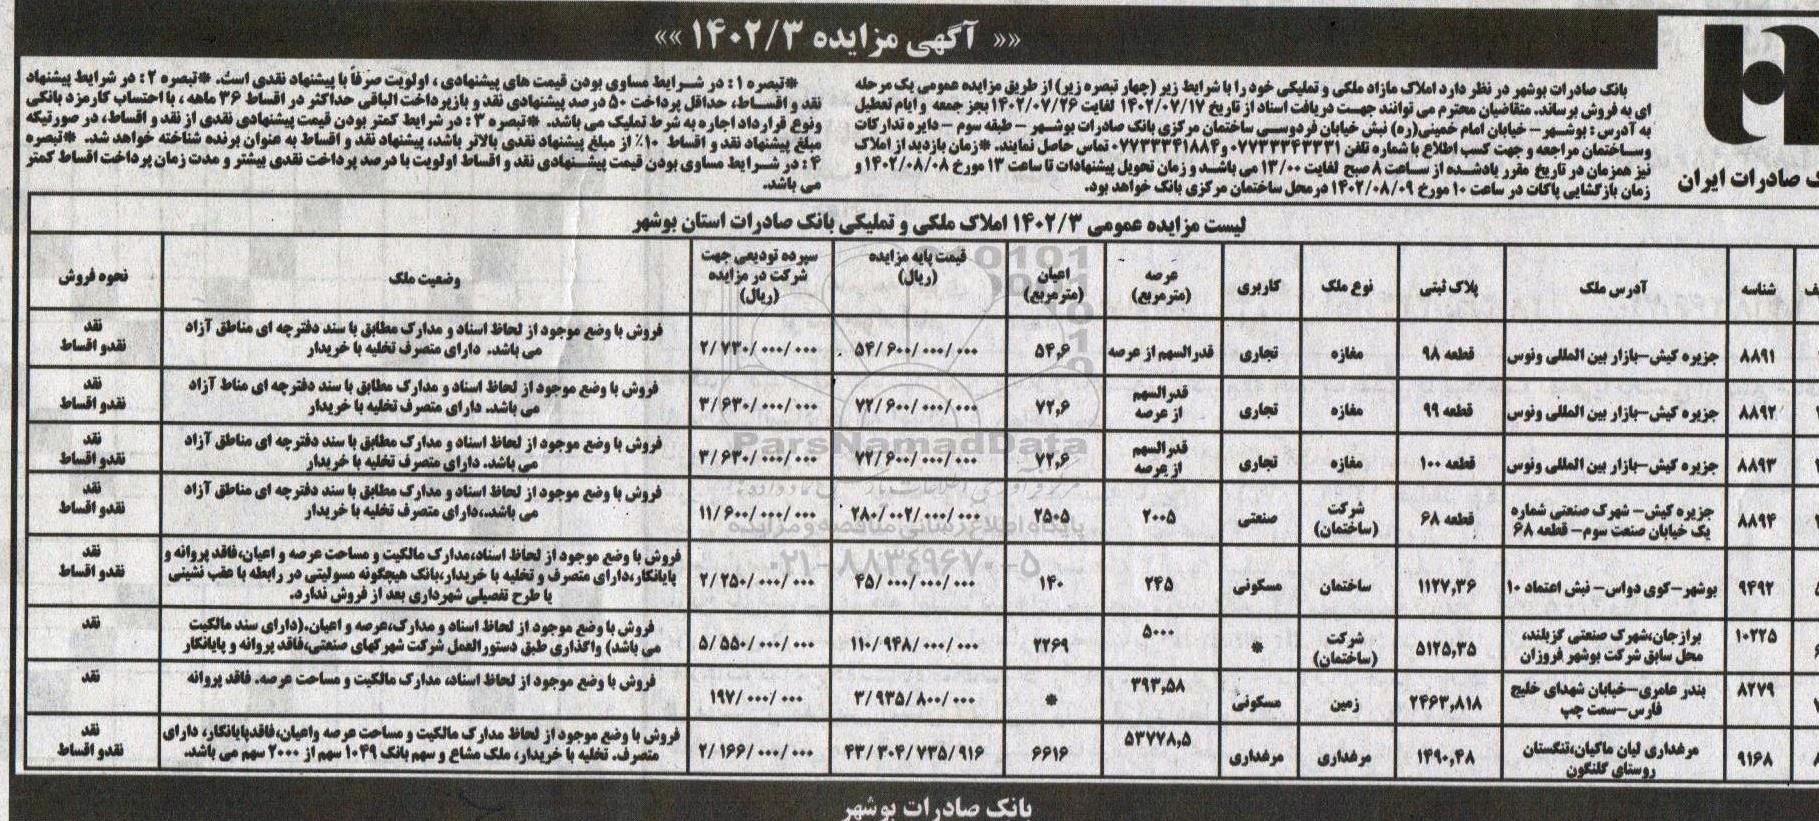 «« آگهی مزایده ۱۴۰۲/۳ »»
ک صادرات ایران
بانک صادرات بوشهر در نظر دارد املاک مازاد ملکی و تملیکی خود را با شرایط زیر (چهار تبصره زیر) از طریق مزایده عمومی یک مرحله
ای به فروش برساند. متقاضیان محترم می توانند جهت دریافت اسناد از تاریخ ۱۴۰۲/۰۷/۱۷ لغایت ۱۴۰۲/۰۷/۲۶ بجز جمعه و ایام تعطیل
به آدرس : بوشهر – خیابان امام خمینی(ره) نبش خیابان فردوسی ساختمان مرکزی بانک صادرات بوشهر – طبقه سوم – دایره تدارکات
وساختمان مراجعه و جهت کسب اطلاع با شماره تلفن ۰۷۷۳۳۳۴۳۳۳۱ و ۰۷۷۳۳۳۴۱۸۸۴ تماس حاصل نمایند. *زمان بازدید از املاک
نیز همزمان در تاریخ مقرر یادشده از ساعت ۸ صبح لغایت ۱۳/۰۰ می باشد و زمان تحویل پیشنهادات تا ساعت ۱۳ مورخ ۱۴۰۲/۰۸/۰۸ و
زمان بازگشایی پاکات در ساعت ۱۰ مورخ ۱۴۰۲/۰۸/۰۹ درمحل ساختمان مرکزی بانک خواهد بود.
*تبصره ۱ : در شرایط مساوی بودن قیمت های پیشنهادی ، اولویت صرفاً با پیشنهاد نقدی است. *تبصره ۲ : در شرایط پیشنهاد
نقد و اقساط، حداقل پرداخت ۵۰ درصد پیشنهادی نقد و بازپرداخت الباقی حداکثر در اقساط ۳۶ ماهه ، با احتساب کارمزد بانکی
ونوع قرارداد اجاره به شرط تملیک می باشد. *تبصره ۳ : در شرایط کمتر بودن قیمت پیشنهادی نقدی از نقد و اقساط، در صورتیکه
مبلغ پیشنهاد نقد و اقساط ۱۰٪ از مبلغ پیشنهاد نقدی بالاتر باشد، پیشنهاد نقد و اقساط به عنوان برنده شناخته خواهد شد. *تبصره
۴ : در شرایط مساوی بودن قیمت پیشنهادی نقد و اقساط اولویت با درصد پرداخت نقدی بیشتر و مدت زمان پرداخت اقساط کمتر
می باشد.
لیست مزایده عمومی ۱۴۰۲/۳ املاک ملکی و تملیکی بانک صادرات استان بوشهر
شناسه | آدرس ملک | پلاک ثبتی | نوع ملک | کاربری | عرصه (مترمربع) | اعیان (مترمربع) | قیمت پایه مزایده (ریال) | سپرده تودیعی جهت شرکت در مزایده (ریال) | وضعیت ملک | نحوه فروش
۸۸۹۱ | جزیره کیش–بازار بین المللی ونوس | قطعه ۹۸ | مغازه | تجاری | قدرالسهم از عرصه | ۵۴,۶ | ۵۴/۶۰۰/۰۰۰/۰۰۰ | ۲/۷۳۰/۰۰۰/۰۰۰ | فروش با وضع موجود از لحاظ اسناد و مدارک مطابق با سند دفترچه ای مناطق آزاد می باشد. دارای متصرف تخلیه با خریدار | نقد نقدو اقساط
۸۸۹۲ | جزیره کیش–بازار بین المللی ونوس | قطعه ۹۹ | مغازه | تجاری | قدرالسهم از عرصه | ۷۲,۶ | ۷۲/۶۰۰/۰۰۰/۰۰۰ | ۳/۶۳۰/۰۰۰/۰۰۰ | فروش با وضع موجود از لحاظ اسناد و مدارک مطابق با سند دفترچه ای مناط آزاد می باشد. دارای متصرف تخلیه با خریدار | نقد نقدو اقساط
۸۸۹۳ | جزیره کیش–بازار بین المللی ونوس | قطعه ۱۰۰ | مغازه | تجاری | قدرالسهم ازعرصه | ۷۲,۶ | ۷۲/۶۰۰/۰۰۰/۰۰۰ | ۳/۶۳۰/۰۰۰/۰۰۰ | فروش با وضع موجود از لحاظ اسناد و مدارک مطابق با سند دفترچه ای مناطق آزاد می باشد. دارای متصرف تخلیه با خریدار | نقد نقدو اقساط
۸۸۹۴ | جزیره کیش– شهرک صنعتی شماره یک خیابان صنعت سوم– قطعه ۶۸ | قطعه ۶۸ | شرکت (ساختمان) | صنعتی | ۲۰۰۵ | ۲۵۰۵ | ۲۸۰/۰۰۲/۰۰۰/۰۰۰ | ۱۱/۶۰۰/۰۰۰/۰۰۰ | فروش با وضع موجود از لحاظ اسناد و مدارک مطابق با سند دفترچه ای مناطق آزاد می باشد.،دارای متصرف تخلیه با خریدار | نقد نقدو اقساط
۹۴۹۲ | بوشهر–کوی دواس– نبش اعتماد ۱۰ | ۱۱۲۷,۳۶ | ساختمان | مسکونی | ۲۴۵ | ۱۴۰ | ۴۵/۰۰۰/۰۰۰/۰۰۰ | ۲/۲۵۰/۰۰۰/۰۰۰ | فروش با وضع موجود از لحاظ اسناد،مدارک مالکیت و مساحت عرصه و اعیان،فاقد پروانه و پایانکار،دارای متصرف و تخلیه با خریدار،بانک هیچگونه مسولیتی در رابطه با عقب نشینی یا طرح تفصیلی شهرداری بعد از فروش ندارد. | نقد نقدو اقساط
۱۰۲۲۵ | برازجان،شهرک صنعتی گزبلند، محل سابق شرکت بوشهر فروزان | ۵۱۲۵,۳۵ | شرکت (ساختمان) | * | ۵۰۰۰ | ۲۲۶۹ | ۱۱۰/۹۴۸/۰۰۰/۰۰۰ | ۵/۵۵۰/۰۰۰/۰۰۰ | فروش با وضع موجود از لحاظ اسناد و مدارک،عرصه و اعیان،(دارای سند مالکیت می باشد) واگذاری طبق دستورالعمل شرکت شهرکهای صنعتی،فاقد پروانه و پایانکار | نقد
۸۲۷۹ | بندر عامری–خیابان شهدای خلیج فارس–سمت چپ | ۲۴۶۳,۸۱۸ | زمین | مسکونی | ۳۹۳,۵۸ | * | ۳/۹۳۵/۸۰۰/۰۰۰ | ۱۹۷/۰۰۰/۰۰۰ | فروش با وضع موجود از لحاظ اسناد، مدارک مالکیت و مساحت عرصه، فاقد پروانه | نقد
۹۱۶۸ | مرغداری لیان ماکیان،تنگستان روستای گلنگون | ۱۴۹۰,۴۸ | مرغداری | مرغداری | ۵۳۷۷۸,۵ | ۶۶۱۶ | ۴۳/۳۰۴/۷۳۵/۹۱۶ | ۲/۱۶۶/۰۰۰/۰۰۰ | فروش با وضع موجود از لحاظ مدارک مالکیت و مساحت عرصه واعیان،فاقدپایانکار، دارای متصرف، تخلیه با خریدار، ملک مشاع و سهم بانک ۱۰۴۹ سهم از ۲۰۰۰ سهم می باشد. | نقد نقدو اقساط
ParsNamadData
پایگاه اطلاع رسانی مناقصه و مزایده
۰۲۱-۸۸۳۴۹۶۷۰-۵
بانک صادرات بوشهر